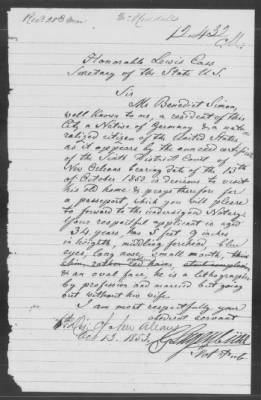 12,432
Honorable Lewis Cass
Secretary of the State U.S.
Sir
Mr Benedict Simon,
well known to me, a resident of this
City a Native of Germany & a natu
ralized citizen of the United States
as it appears by the annexed certificate
of the Sixth District Court of
New Orleans bearing date of the 13th
of October 1853 is desirous to visit
his old home & prays therefore for
a passport, which you will please
to forward to the undersigned Notary.
Your respectful applicant is aged
34 years, has 5 feet 9 inches
in heights, middling forehead, blue
eyes, long nose, small mouth,
chin,
& an oval face, he is a lithographer
by profession and married but going
out without his wife.
I am most respectfully your
obedient servant
Oct 13. 1853
Not Pub